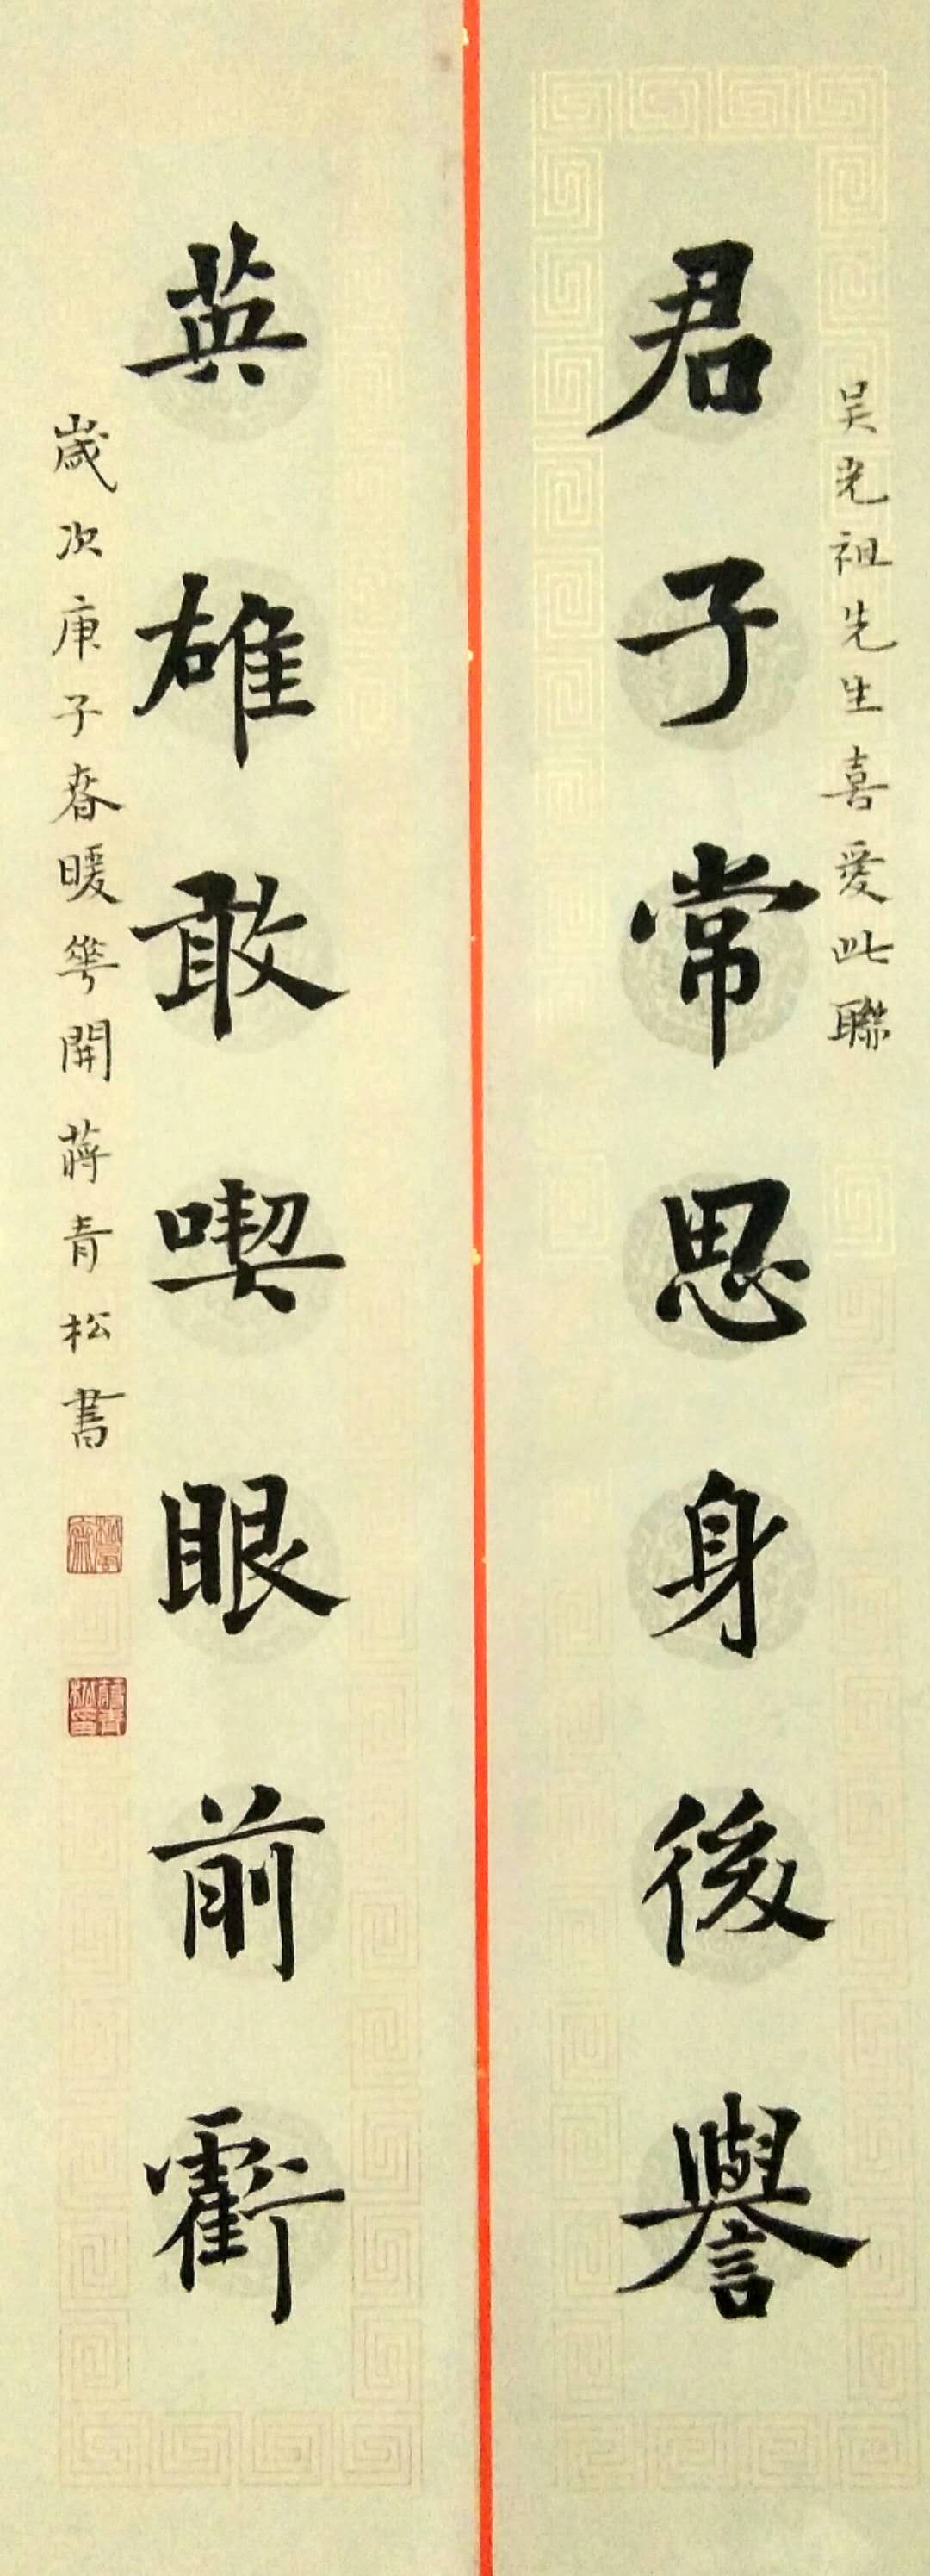 吴光祖先生喜愛此聯
君子常思身後譽
英雄敢喫眼前虧
歲次庚子春暖華開蔣青松書